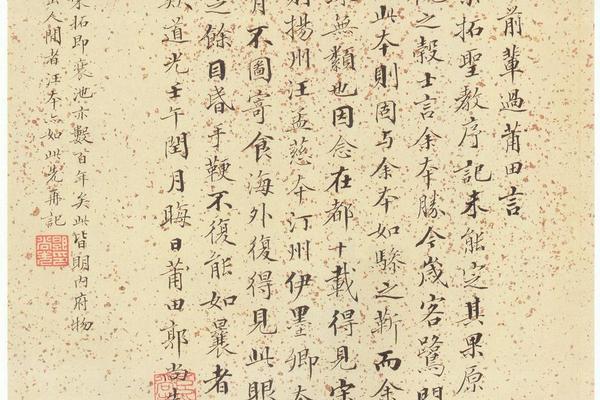 前輩過莆田言
拓聖教序記未能定其果原
之穀士言余本勝今歲客鷺門
此本則固与余本如驂之靳而余
無纇也因念在都十載得見宋
揚州汪孟慈本汀州伊墨卿本
月不圖寄食海外復得見此眼
之餘目昏手鞕不復能如曩者
歟道光壬午閏月晦日莆田郭尚先
宋拓即裝池亦數百年矣此皆明內府物
人間者汪本亦如此先再記